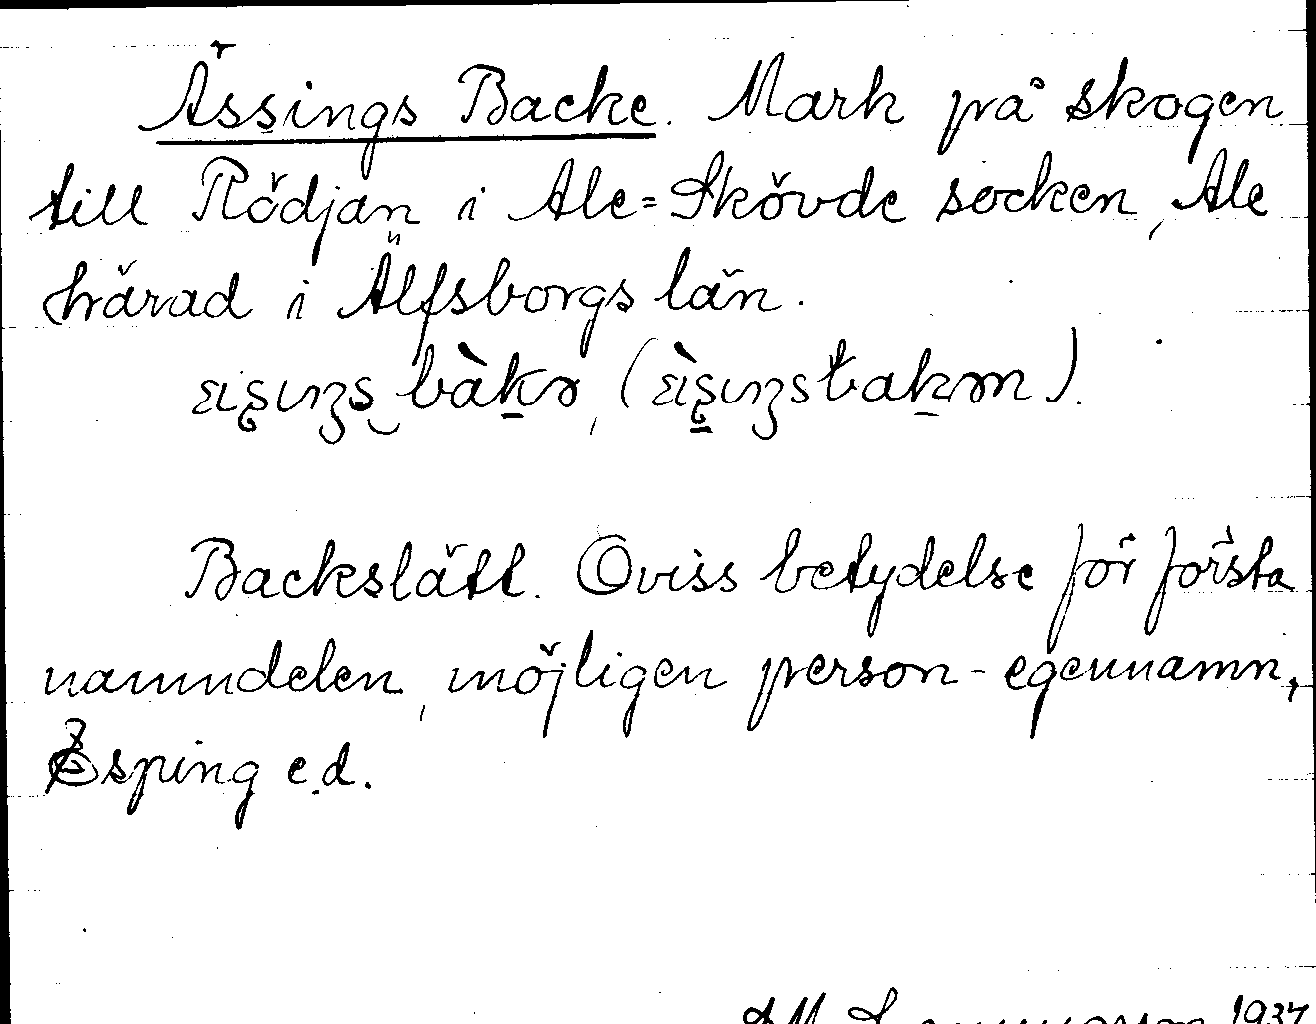 Ässings Backe. Mark på skogen
till Rödjan i Ale=Skövde socken, Ale
härad i Älfsborgs län.
Backslätt. Oviss betydelse för första
namndelen, möjligen person-egennamn,
Esping e.d.
1937